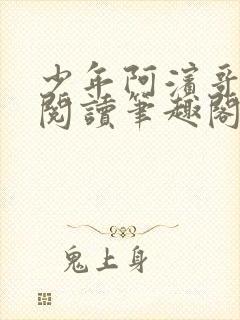 少年阿濱哥
閱讀筆趣閣
鬼上身